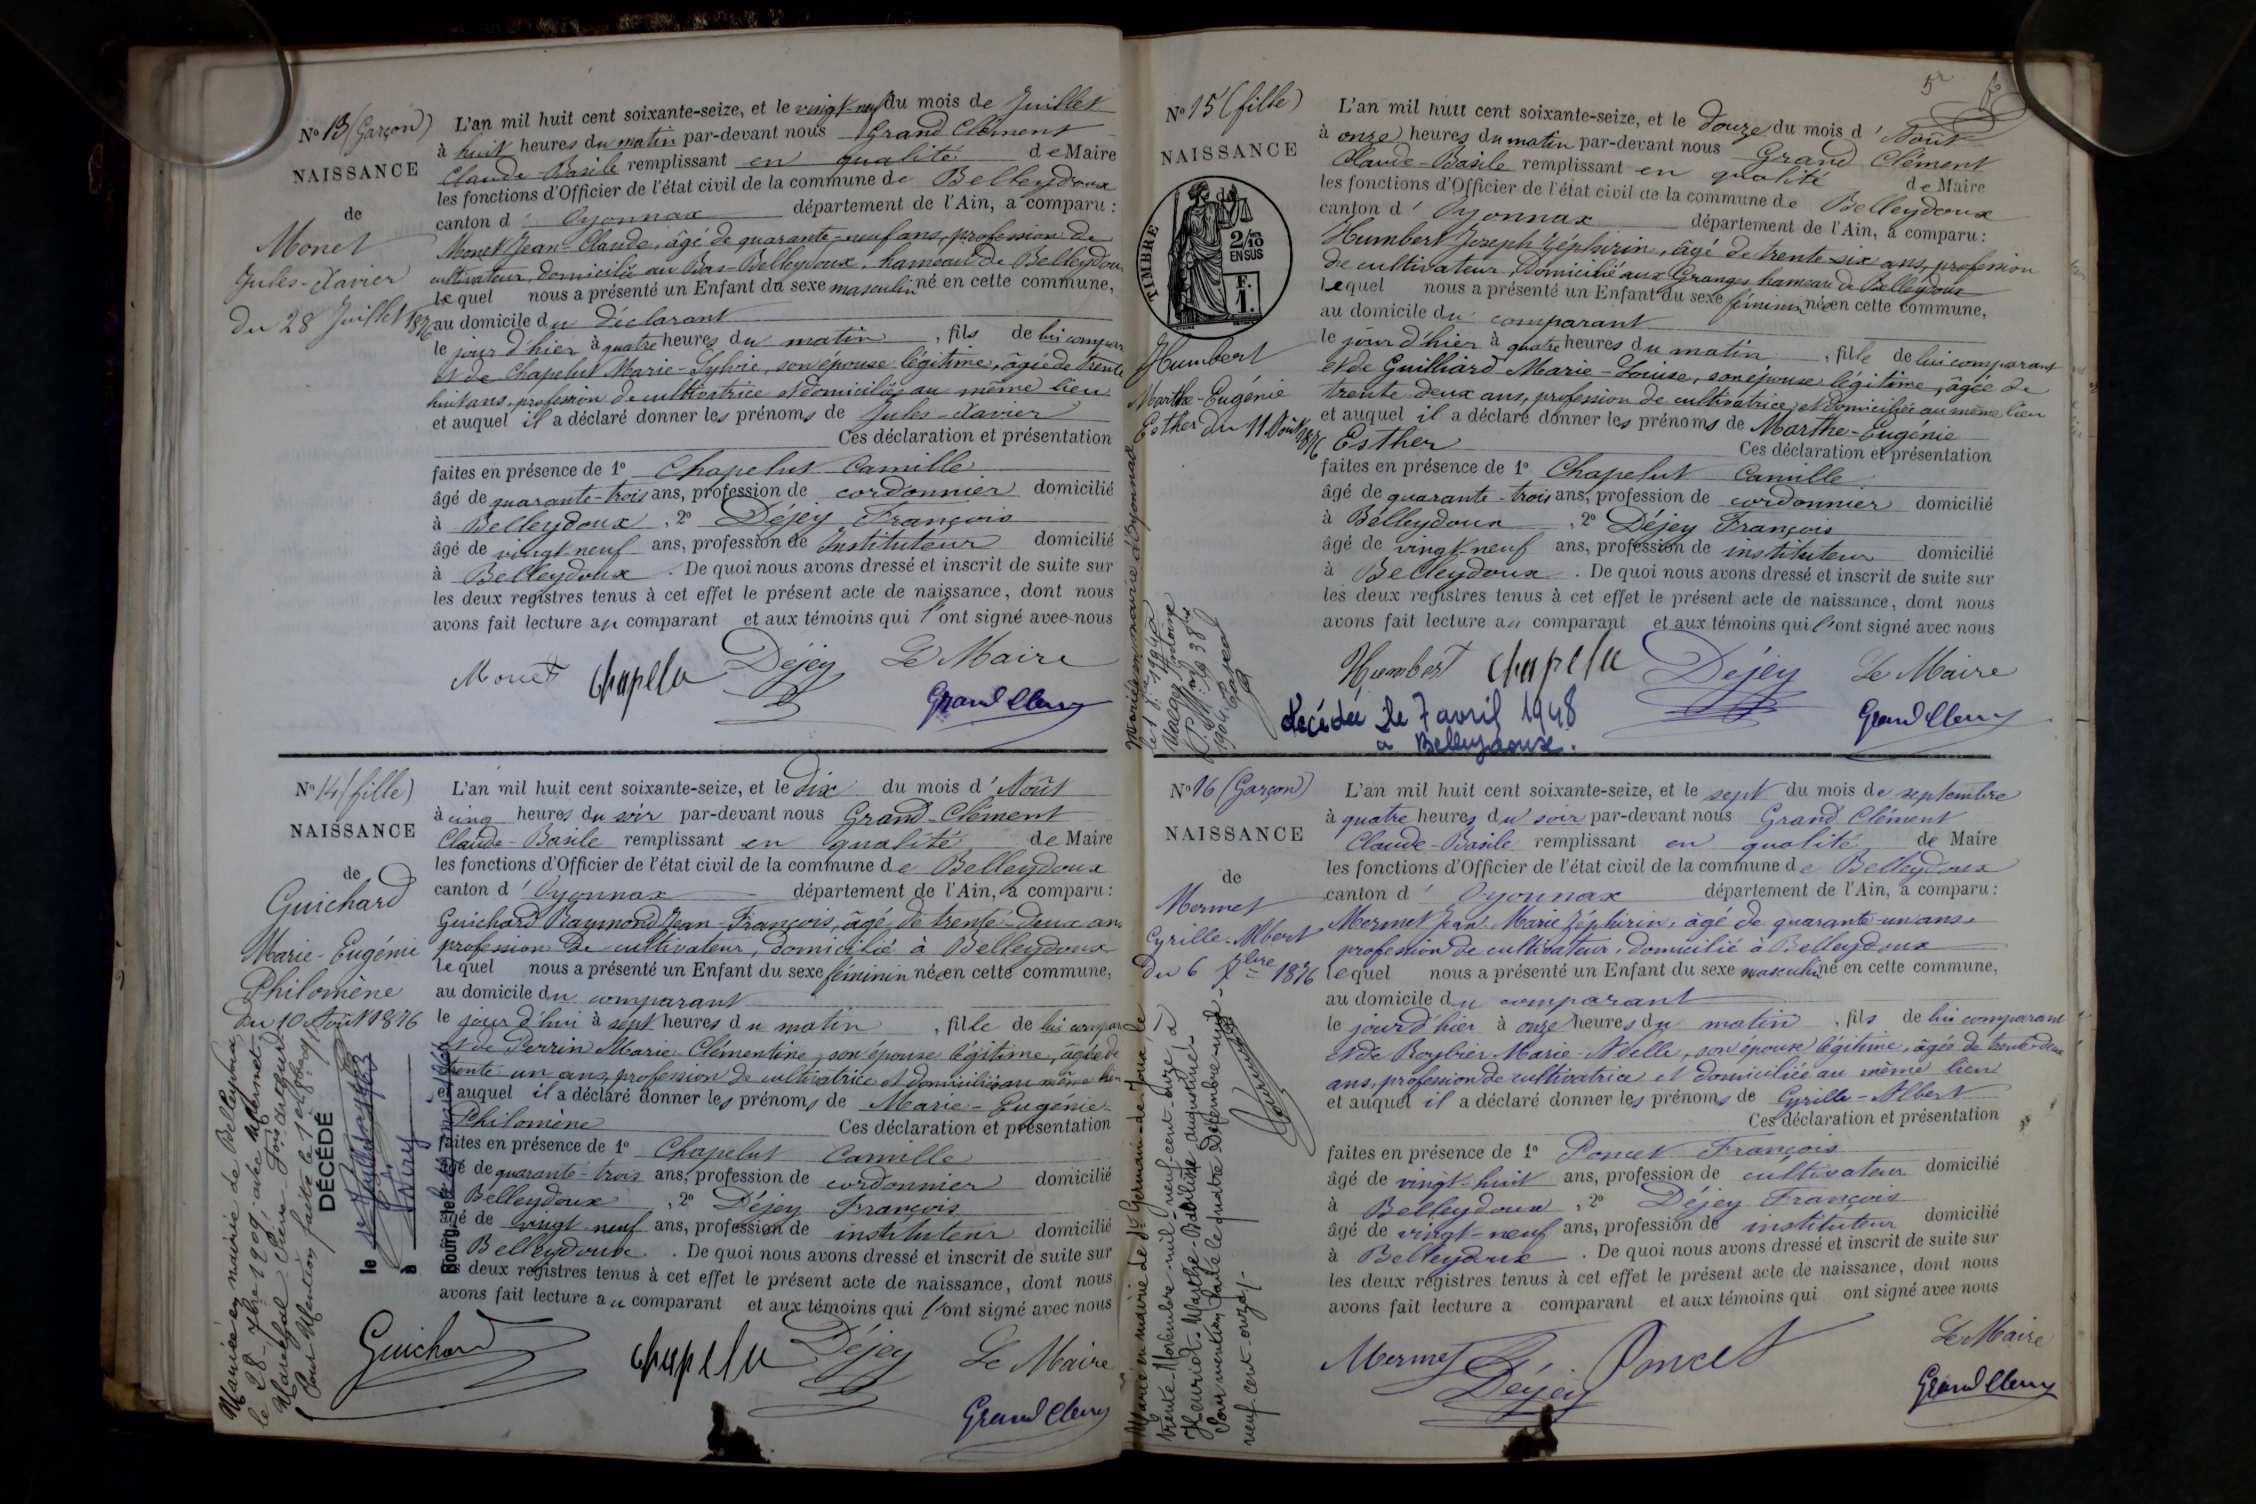 Nº 13 (Garçon)
NAISSANCE
de
Monet
Jules-Xavier
du 28 Juillet 1876
L'an mil huit cent soixante-seize, et le vingt-neuf du mois de Juillet
à huit heures du matin par-devant nous Grand Clément
Claude Basile remplissant en qualité de Maire
les fonctions d'Officier de l'état civil de la commune de Belleydoux
canton d'Oyonnax département de l'Ain, a comparu :
Monet Jean-Claude, âgé de quarante-neuf ans, profession de
cultivateur, domicilié au Bas-Belleydoux, hameau de Belleydoux
lequel nous a présenté un Enfant du sexe masculin né en cette commune,
au domicile du déclarant
le jour d'hier à quatre heures du matin, fils de lui compar
et de Chapelut Marie-Sylvie, son épouse légitime, âgée de trente
huit ans, profession de cultivatrice et domiciliée au même lieu
et auquel il a déclaré donner les prénoms de Jules-Xavier
Ces déclaration et présentation
faites en présence de 1º Chapelut Camille
âgé de quarante-trois ans, profession de cordonnier domicilié
à Belleydoux, 2º Déjey François
âgé de vingt-neuf ans, profession de Instituteur domicilié
à Belleydoux. De quoi nous avons dressé et inscrit de suite sur
les deux registres tenus à cet effet le présent acte de naissance, dont nous
avons fait lecture au comparant et aux témoins qui l'ont signé avec nous
Monet Chapelu Déjey Le Maire
Grand Clem
Nº 14 (fille)
NAISSANCE
de
Guichard
Marie-Eugénie
Philomène
du 10 Août 1876
Mariée en mairie de Belleydoux
le 28 7bre 1909, avec Mermet
Pour Mention faite le 1er 8bre
DÉCÉDÉ
le
à
L'an mil huit cent soixante-seize, et le dix du mois d'Août
à cinq heures du soir par-devant nous Grand-Clément
Claude-Basile remplissant en qualité de Maire
les fonctions d'Officier de l'état civil de la commune de Belleydoux
canton d'Oyonnax département de l'Ain, a comparu :
Guichard Raymond Jean-François, âgé de trente-deux ans
profession de cultivateur, domicilié à Belleydoux
lequel nous a présenté un Enfant du sexe féminin née en cette commune,
au domicile du comparant
le jour d'hui à sept heures du matin, fille de lui compar
et de Perrin Marie-Clémentine, son épouse légitime, âgée de
trente un ans, profession de cultivatrice et domiciliée au même lieu
et auquel il a déclaré donner les prénoms de Marie-Eugénie
Philomène Ces déclaration et présentation
faites en présence de 1º Chapelut Camille
âgé de quarante-trois ans, profession de cordonnier domicilié
Belleydoux, 2º Déjey François
âgé de vingt neuf ans, profession de instituteur domicilié
Belleydoux. De quoi nous avons dressé et inscrit de suite sur
deux registres tenus à cet effet le présent acte de naissance, dont nous
avons fait lecture au comparant et aux témoins qui l'ont signé avec nous
Guichard Chapelu Déjey Le Maire
Grand Clem
5
Nº 15 (fille)
NAISSANCE
de
TIMBRE
2/10
EN SUS
F.
1.
Humbert
Marthe-Eugénie
Esther du 11 Août 1876
Mariée en mairie d'Oyonnax
L'an mil huit cent soixante-seize, et le douze du mois d'Août
à onze heures du matin par-devant nous Grand Clément
Claude-Basile remplissant en qualité de Maire
les fonctions d'Officier de l'état civil de la commune de Belleydoux
canton d'Oyonnax département de l'Ain, a comparu :
Humbert Joseph Zéphirin, âgé de trente-six ans, profession
de cultivateur, Domicilié aux Granges hameau de Belleydoux
lequel nous a présenté un Enfant du sexe féminin née en cette commune,
au domicile du comparant
le jour d'hier à quatre heures du matin, fille de lui comparant
et de Guilliard Marie-Louise, son épouse légitime, âgée de
trente-deux ans, profession de cultivatrice, et domiciliée au même lieu
et auquel il a déclaré donner les prénoms de Marthe-Eugénie
Esther Ces déclaration et présentation
faites en présence de 1º Chapelut Camille
âgé de quarante-trois ans, profession de cordonnier domicilié
à Belleydoux, 2º Déjey François
âgé de vingt-neuf ans, profession de instituteur domicilié
à Belleydoux. De quoi nous avons dressé et inscrit de suite sur
les deux registres tenus à cet effet le présent acte de naissance, dont nous
avons fait lecture au comparant et aux témoins qui l'ont signé avec nous
Humbert Chapelu Déjey Le Maire
Grand Clem
décédée le 7 avril 1948
à Belleydoux.
Nº 16 (Garçon)
NAISSANCE
de
Mermet
Cyrille-Albert
Du 6 7bre 1876
Marié en mairie de St Germain-de-Joux, le
trente Novembre mil-neuf-cent-onze, à
Henriot Marthe
Pour mention faite le quatre Décembre mil
neuf cent onze
L'an mil huit cent soixante-seize, et le sept du mois de septembre
à quatre heures du soir par-devant nous Grand Clément
Claude-Basile remplissant en qualité de Maire
les fonctions d'Officier de l'état civil de la commune de Belleydoux
canton d'Oyonnax département de l'Ain, a comparu :
Mermet Jean Marie Zéphirin, âgé de quarante-un ans,
profession de cultivateur, domicilié à Belleydoux
lequel nous a présenté un Enfant du sexe masculin né en cette commune,
au domicile du comparant
le jour d'hier à onze heures du matin, fils de lui comparant
et de Roybier Marie-Adelle, son épouse légitime, âgée de trente-deux
ans, profession de cultivatrice et domiciliée au même lieu
et auquel il a déclaré donner les prénoms de Cyrille-Albert
Ces déclaration et présentation
faites en présence de 1º Poncet François
âgé de vingt-huit ans, profession de cultivateur domicilié
à Belleydoux, 2º Déjey François
âgé de vingt-neuf ans, profession de instituteur domicilié
à Belleydoux. De quoi nous avons dressé et inscrit de suite sur
les deux registres tenus à cet effet le présent acte de naissance, dont nous
avons fait lecture a comparant et aux témoins qui ont signé avec nous
Mermet Déjey Poncet Le Maire
Grand Clem